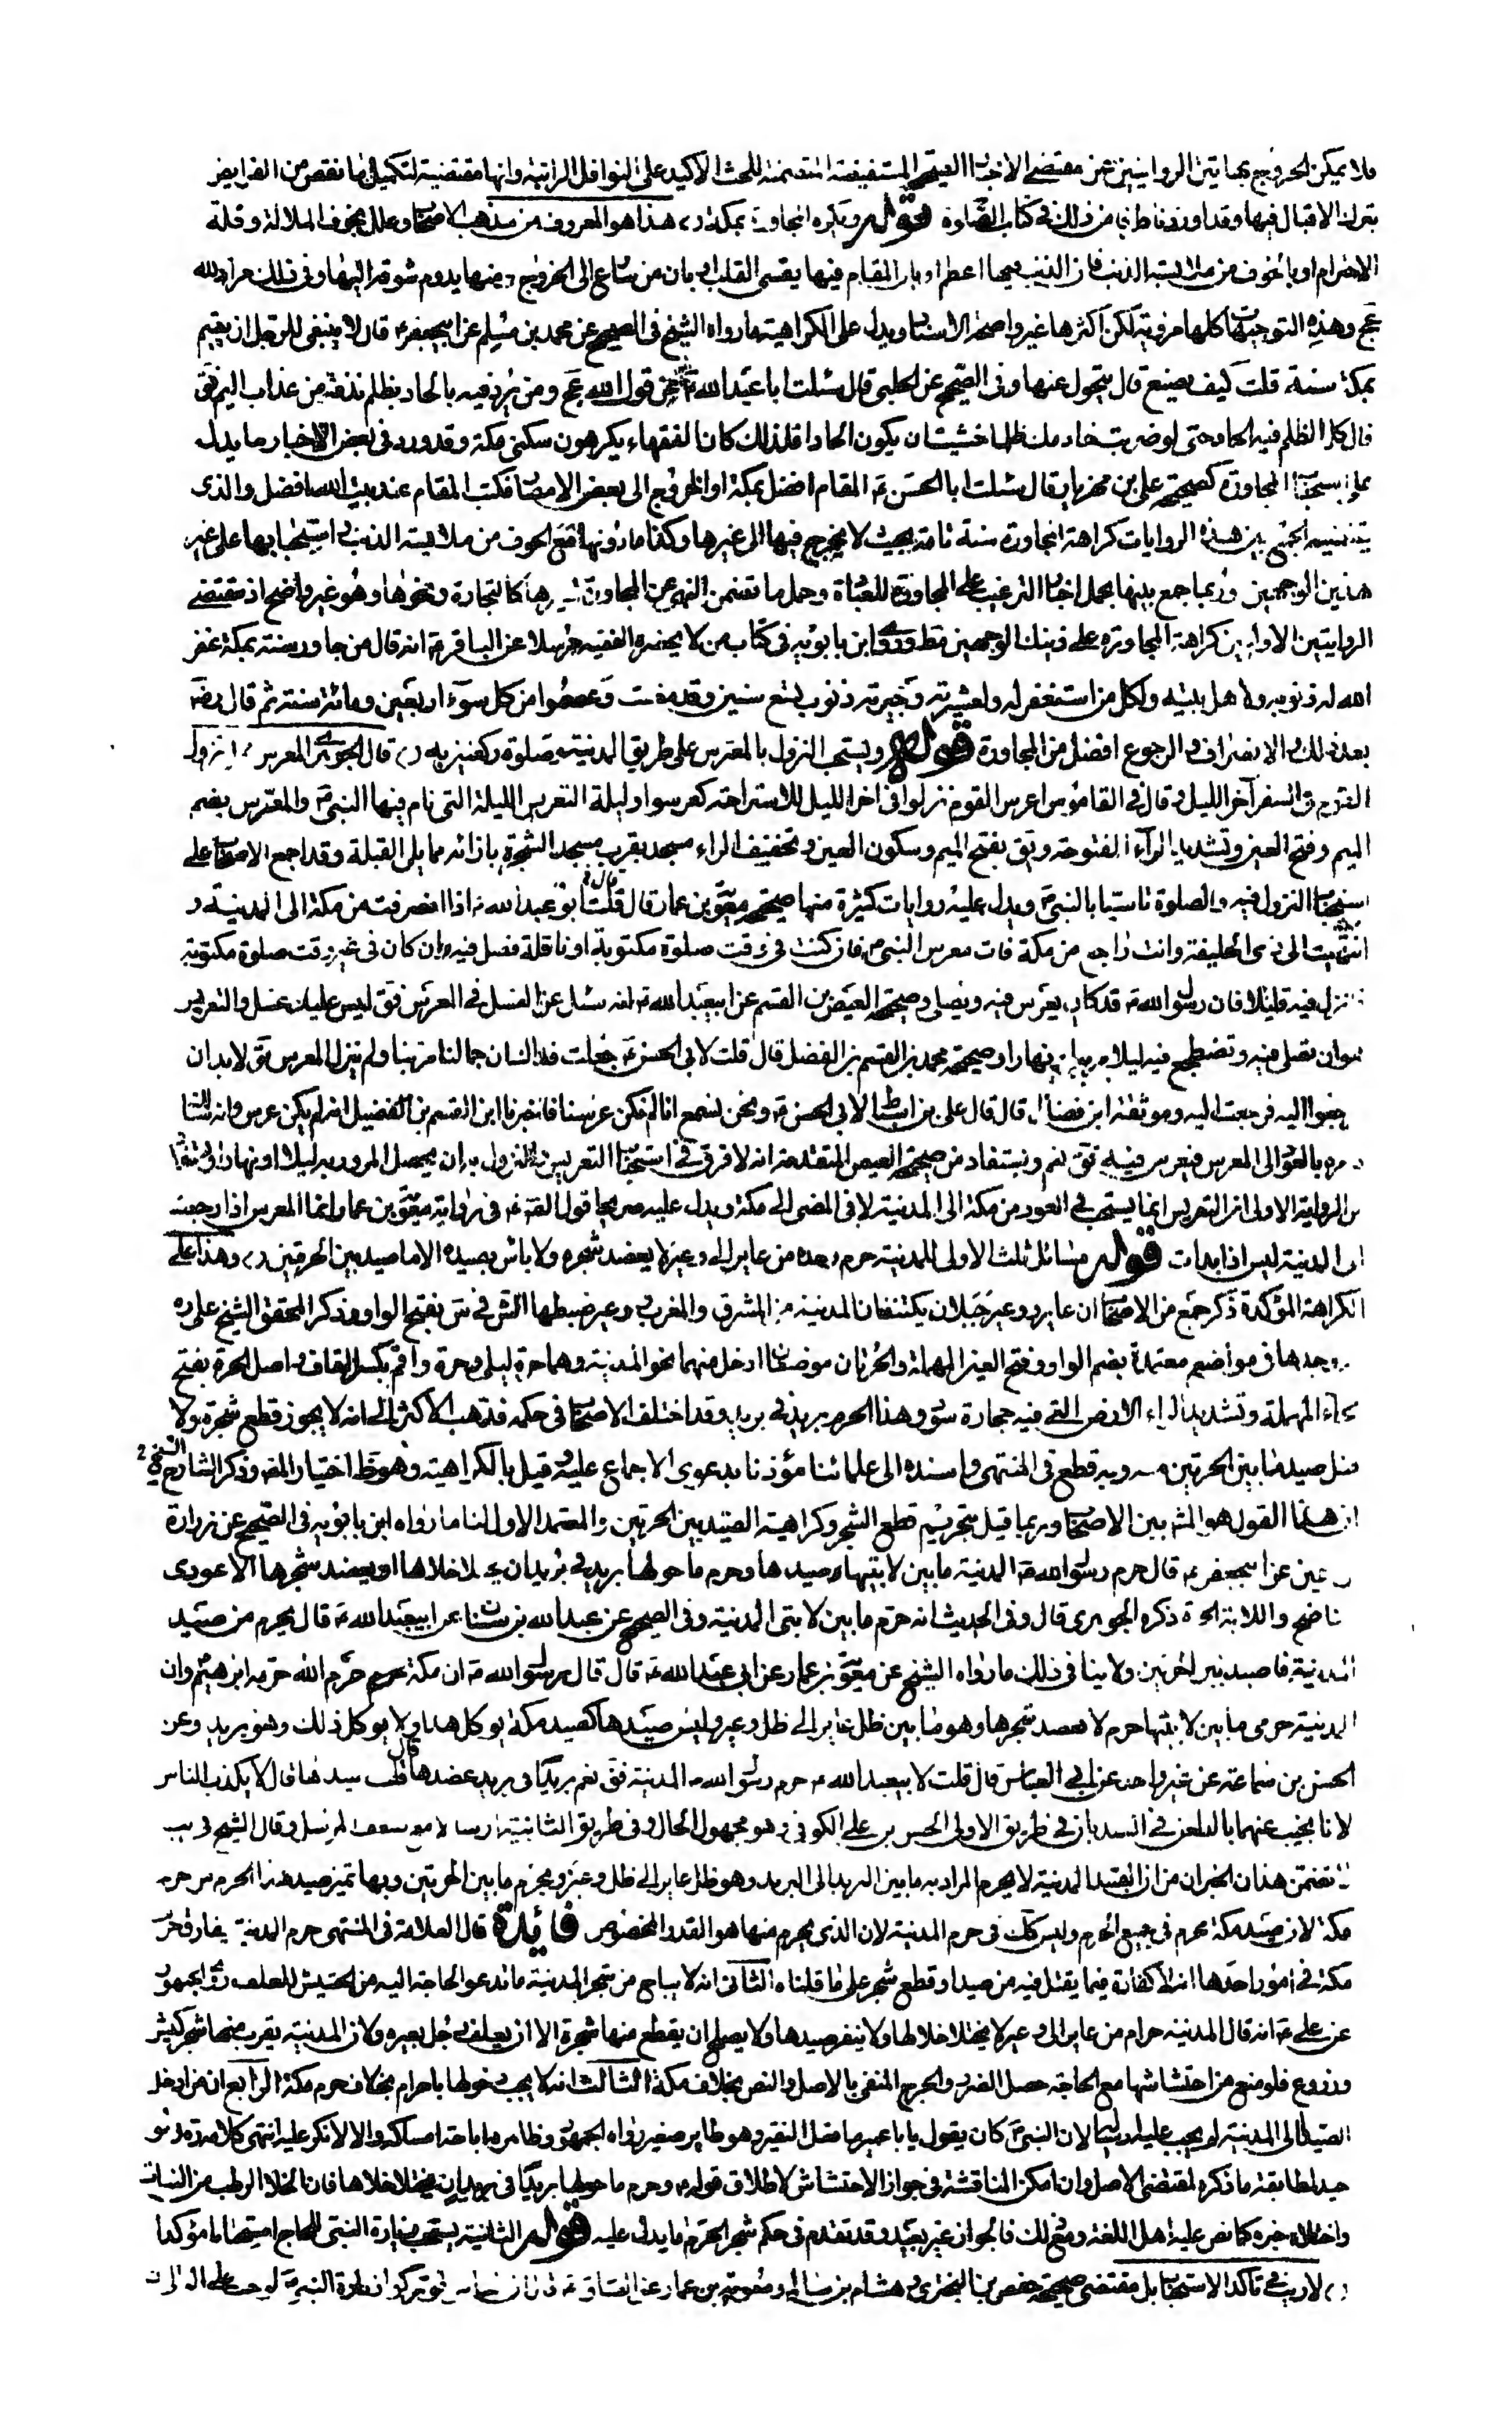 فلا يمكن الخروج بهاتين الروايتين عن مقتضى الاخبار المستفيضة المتضمنة للحث الاكيد على النوافل الراتبة وانها مقتضية لتكميل ما نقص من الفرايض
بترك الاقبال فيها وقد اوردنا طرفا من ذلك في كتاب الصلوة قوله ويكره المجاورة بمكة هذا هو المعروف من مذهب الاصحاب وعلل بخوف الملالة وقلة
الاحترام او بالخوف من ملابسة الذنب فان الذنب فيها اعظم او بان المقام فيها يقسى القلب او بان من سارع الى الخروج منها يدوم شوقه اليها وذلك مراد الله
عج وهذه التوجيهات كلها مروية لكن اكثرها غير واضحة الاسناد ويدل على الكراهية ما رواه الشيخ في الصحيح عن محمد بن مسلم عن ابيجعفر ع قال لا ينبغي للرجل ان يقيم
بمكة سنة قلت كيف يصنع قال يتحول عنها وفي الصحيح عن الحلبي قال سئلت ابا عبد الله ع عن قول الله عج ومن يرد فيه بالحاد بظلم نذقه من عذاب اليم فق
قال كل الظلم فيه الحاد حتى لو ضربت خادمك ظلما خشيت ان يكون الحادا فلذلك كان الفقهاء يكرهون سكنى مكة وقد ورد في بعض الاخبار ما يدل
على استحباب المجاورة كصحيحة علي بن مهزيار قال سئلت ابا الحسن ع المقام افضل بمكة او الخروج الى بعض الامصار فكتب المقام عند بيت الله افضل والذي
يقتضيه الجمع بين هذه الروايات كراهة المجاورة سنة تامة بحيث لا يخرج فيها الى غيرها وكذا ما دونها مع الخوف من ملابسة الذنب واستحبابها على غير
هذين الوجهين وربما جمع بينها بحمل اخبار الترغيب على المجاورة للعبادة وحمل ما تضمن النهي عن المجاورة لغيرها كالتجارة ونحوها وهو غير واضح اذ مقتضى
الروايتين الاوليين كراهة المجاورة على ذينك الوجهين مط وروى ابن بابويه في كتاب من لا يحضره الفقيه مرسلا عن الباقر ع انه قال من جاور سنة بمكة غفر
الله له ذنوبه ولاهل بيته ولكل من استغفر له ولعشيرته وجيرته ذنوب تسع سنين وقد مضت وعصموا من كل سوء اربعين ومائة سنة ثم قال رضه
بعد ذلك والانصراف والرجوع افضل من المجاورة قوله ويستحب النزول بالمعرس على طريق المدينة وصلوة ركعتين به قال الجوهري التعريس نزول
القوم في السفر آخر الليل وقال في القاموس اعرس القوم نزلوا في اخر الليل للاستراحة كعرسوا وليلة التعريس الليلة التي نام فيها النبي ص والمعرس بضم
الميم وفتح العين وتشديد الراء المفتوحة ويق بفتح الميم وسكون العين وتخفيف الراء مسجد بقرب مسجد الشجرة بازائه مما يلي القبلة وقد اجمع الاصحاب على
استحباب النزول فيه والصلوة تاسيا بالنبي ص ويدل عليه روايات كثيرة منها صحيحة معوية بن عمار قال قال ابو عبد الله ع اذا انصرفت من مكة الى المدينة و
انتهيت الى ذي الحليفة وانت راجع من مكة فات معرس النبي ص فان كنت في وقت صلوة مكتوبة او نافلة فصل فيه وان كان في غير وقت صلوة مكتوبة
فانزل فيه قليلا فان رسول الله ص قد كان يعرس فيه ويصلي وصحيحة العيص بن القسم عن ابيعبد الله ع انه سئل عن الغسل في المعرس فق ليس عليك غسل والتعريس
هو ان تصلي فيه وتضطجع فيه ليلا مر به او نهارا وصحيحة محمد بن القسم بن الفضيل قال قلت لابي الحسن ع جعلت فداك ان جمالنا مر بنا ولم ينزل المعرس فق لا بد ان
ترجعوا اليه فرجعت اليه وموثقة ابن فضال قال قال علي بن اسباط لابي الحسن ع ونحن نسمع انا لم نكن عرسنا فاخبرنا ابن القسم بن الفضيل انه لم يكن عرس وانه سئلك
فامره بالعود الى المعرس فيعرس فيه فق نعم ويستفاد من صحيحة العيص المتقدمة انه لا فرق في استحباب التعريس والنزول به ان يحصل المرور به ليلا او نهارا ويستفاد
من الرواية الاولى ان التعريس انما يستحب في العود من مكة الى المدينة لا في المضى الى مكة ويدل عليه صريحا قول الصادق ع في رواية معوية بن عمار وانما المعرس اذا رجعت
الى المدينة ليس اذا بدات قوله مسائل ثلث الاولى للمدينة حرم وحده من عاير الى وعير لا يعضد شجره ولا باس بصيده الا ما صيد بين الحرتين وهذا على
الكراهة المؤكدة ذكر جمع من الاصحاب ان عاير ووعير جبلان يكتنفان المدينة من المشرق والمغرب ووعير ضبطها الش في س بفتح الواو وذكر المحقق الشيخ علي ره
وجدها في مواضع معتمدة بضم الواو وفتح العين المهملة والحرتان موضعان ادخل منهما نحو المدينة وهما حرة ليلى وحرة واقم بكسر القاف واصل الحرة بفتح
الحاء المهملة وتشديد الراء الارض التي فيه حجارة سود وهذا الحرم بريد في بريد وقد اختلف الاصحاب في حكمه فذهب الاكثر الى انه لا يجوز قطع شجره ولا
قتل صيد ما بين الحرتين وبه قطع في المنتهى واسنده الى علمائنا مؤذنا بدعوى الاجماع عليه وقيل بالكراهية وهو ظ اختيار المص وذكر الشارح قدس سره
ان هذا القول هو المش بين الاصحاب وربما قيل بتحريم قطع الشجر وكراهية الصيد بين الحرتين والمعتمد الاول لنا ما رواه ابن بابويه في الصحيح عن زرارة
بن اعين عن ابيجعفر ع قال حرم رسول الله ص المدينة ما بين لابتيها صيدها وحرم ما حولها بريدا في بريد ان يختلى خلاها او يعضد شجرها الا عودى
ناضح واللابة الحرة ذكره الجوهري قال وفي الحديث انه حرم ما بين لابتي المدينة وفي الصحيح عن عبد الله بن سنان عن ابيعبد الله ع قال يحرم من صيد
المدينة ما صيد بين الحرتين ولا ينافى ذلك ما رواه الشيخ عن معوية بن عمار عن ابي عبد الله ع قال قال رسول الله ص ان مكة حرم الله حرمه ابرهيم وان
المدينة حرمى ما بين لابتيها حرم لا يعضد شجرها وهو ما بين ظل عاير الى ظل وعير وليس صيدها كصيد مكة يؤكل هذا ولا يؤكل ذلك وهو بريد وعن
الحسن بن سماعة عن غير واحد عن ابي العباس قال قلت لابيعبد الله ع حرم رسول الله ص المدينة فق نعم بريدا في بريد عضدها قال قلت صيدها قال لا يكذب الناس
لانا نجيب عنهما بالطعن في السند بان في طريق الاولى الحسن بن علي الكوفي وهو مجهول الحال وفي طريق الثانية ارسالا مع ضعف المرسل وقال الشيخ في يب
ما تضمن هذان الخبران من ان صيد المدينة لا يحرم المراد به ما بين البريد الى البريد وهو ظل عاير الى ظل وعير ويحرم ما بين الحرتين وبها تميز صيد هذا الحرم من حرم
مكة لان صيد مكة محرم في جميع الحرم وليس كك في حرم المدينة لان الذي يحرم منها هو القدر المخصوص فائدة قال العلامة في المنتهى حرم المدينة يفارق حرم
مكة في امور احدها انه لا كفارة فيما يقتل فيه من صيد او قطع شجر على ما قلناه الثاني انه لا يباح من شجر المدينة ما تدعو الحاجة اليه من الحشيش للعلف روى الجمهور
عن علي ع انه قال المدينة حرام من عاير الى وعير لا يختلا خلالها ولا ينفر صيدها ولا يصلح ان يقطع منها شجرة الا ان يعلف رجل بعيره ولان المدينة يقرب منها شجر كثير
وزروع فلو منع من احتشاشها مع الحاجة حصل الضرر والحرج المنفي بالاصل والنص بخلاف مكة الثالث انه لا يجب دخولها باحرام بخلاف حرم مكة الرابع ان من ادخل
الصيد الى المدينة لم يجب عليه ارساله لان النبي ص كان يقول يا با عمير ما فعل النغير وهو طاير صغير رواه الجمهور وظاهره اباحة امساكه والا لانكر عليه انتهى كلامه ره وهو
جيد لمطابقة ما ذكره لمقتضى الاصل وان امكن المناقشة في جواز الاحتشاش لاطلاق قوله ع وحرم ما حولها بريدا في بريد ان يختلا خلاها فان الخلا الرطب من النبات
واختلاه جزه كما نص عليه اهل اللغة ومع ذلك فالجواز غير بعيد وقد تقدم في حكم شجر الحرم ما يدل عليه قوله الثانية يستحب زيارة النبي للحاج استحبابا مؤكدا
لا ريب في تاكد الاستحباب بل مقتضى صحيحة حفص بن البختري وهشام بن سالم ومعوية بن عمار عن الصادق ع قال لو تركوا زيارة النبي ص لوجب على الوالي